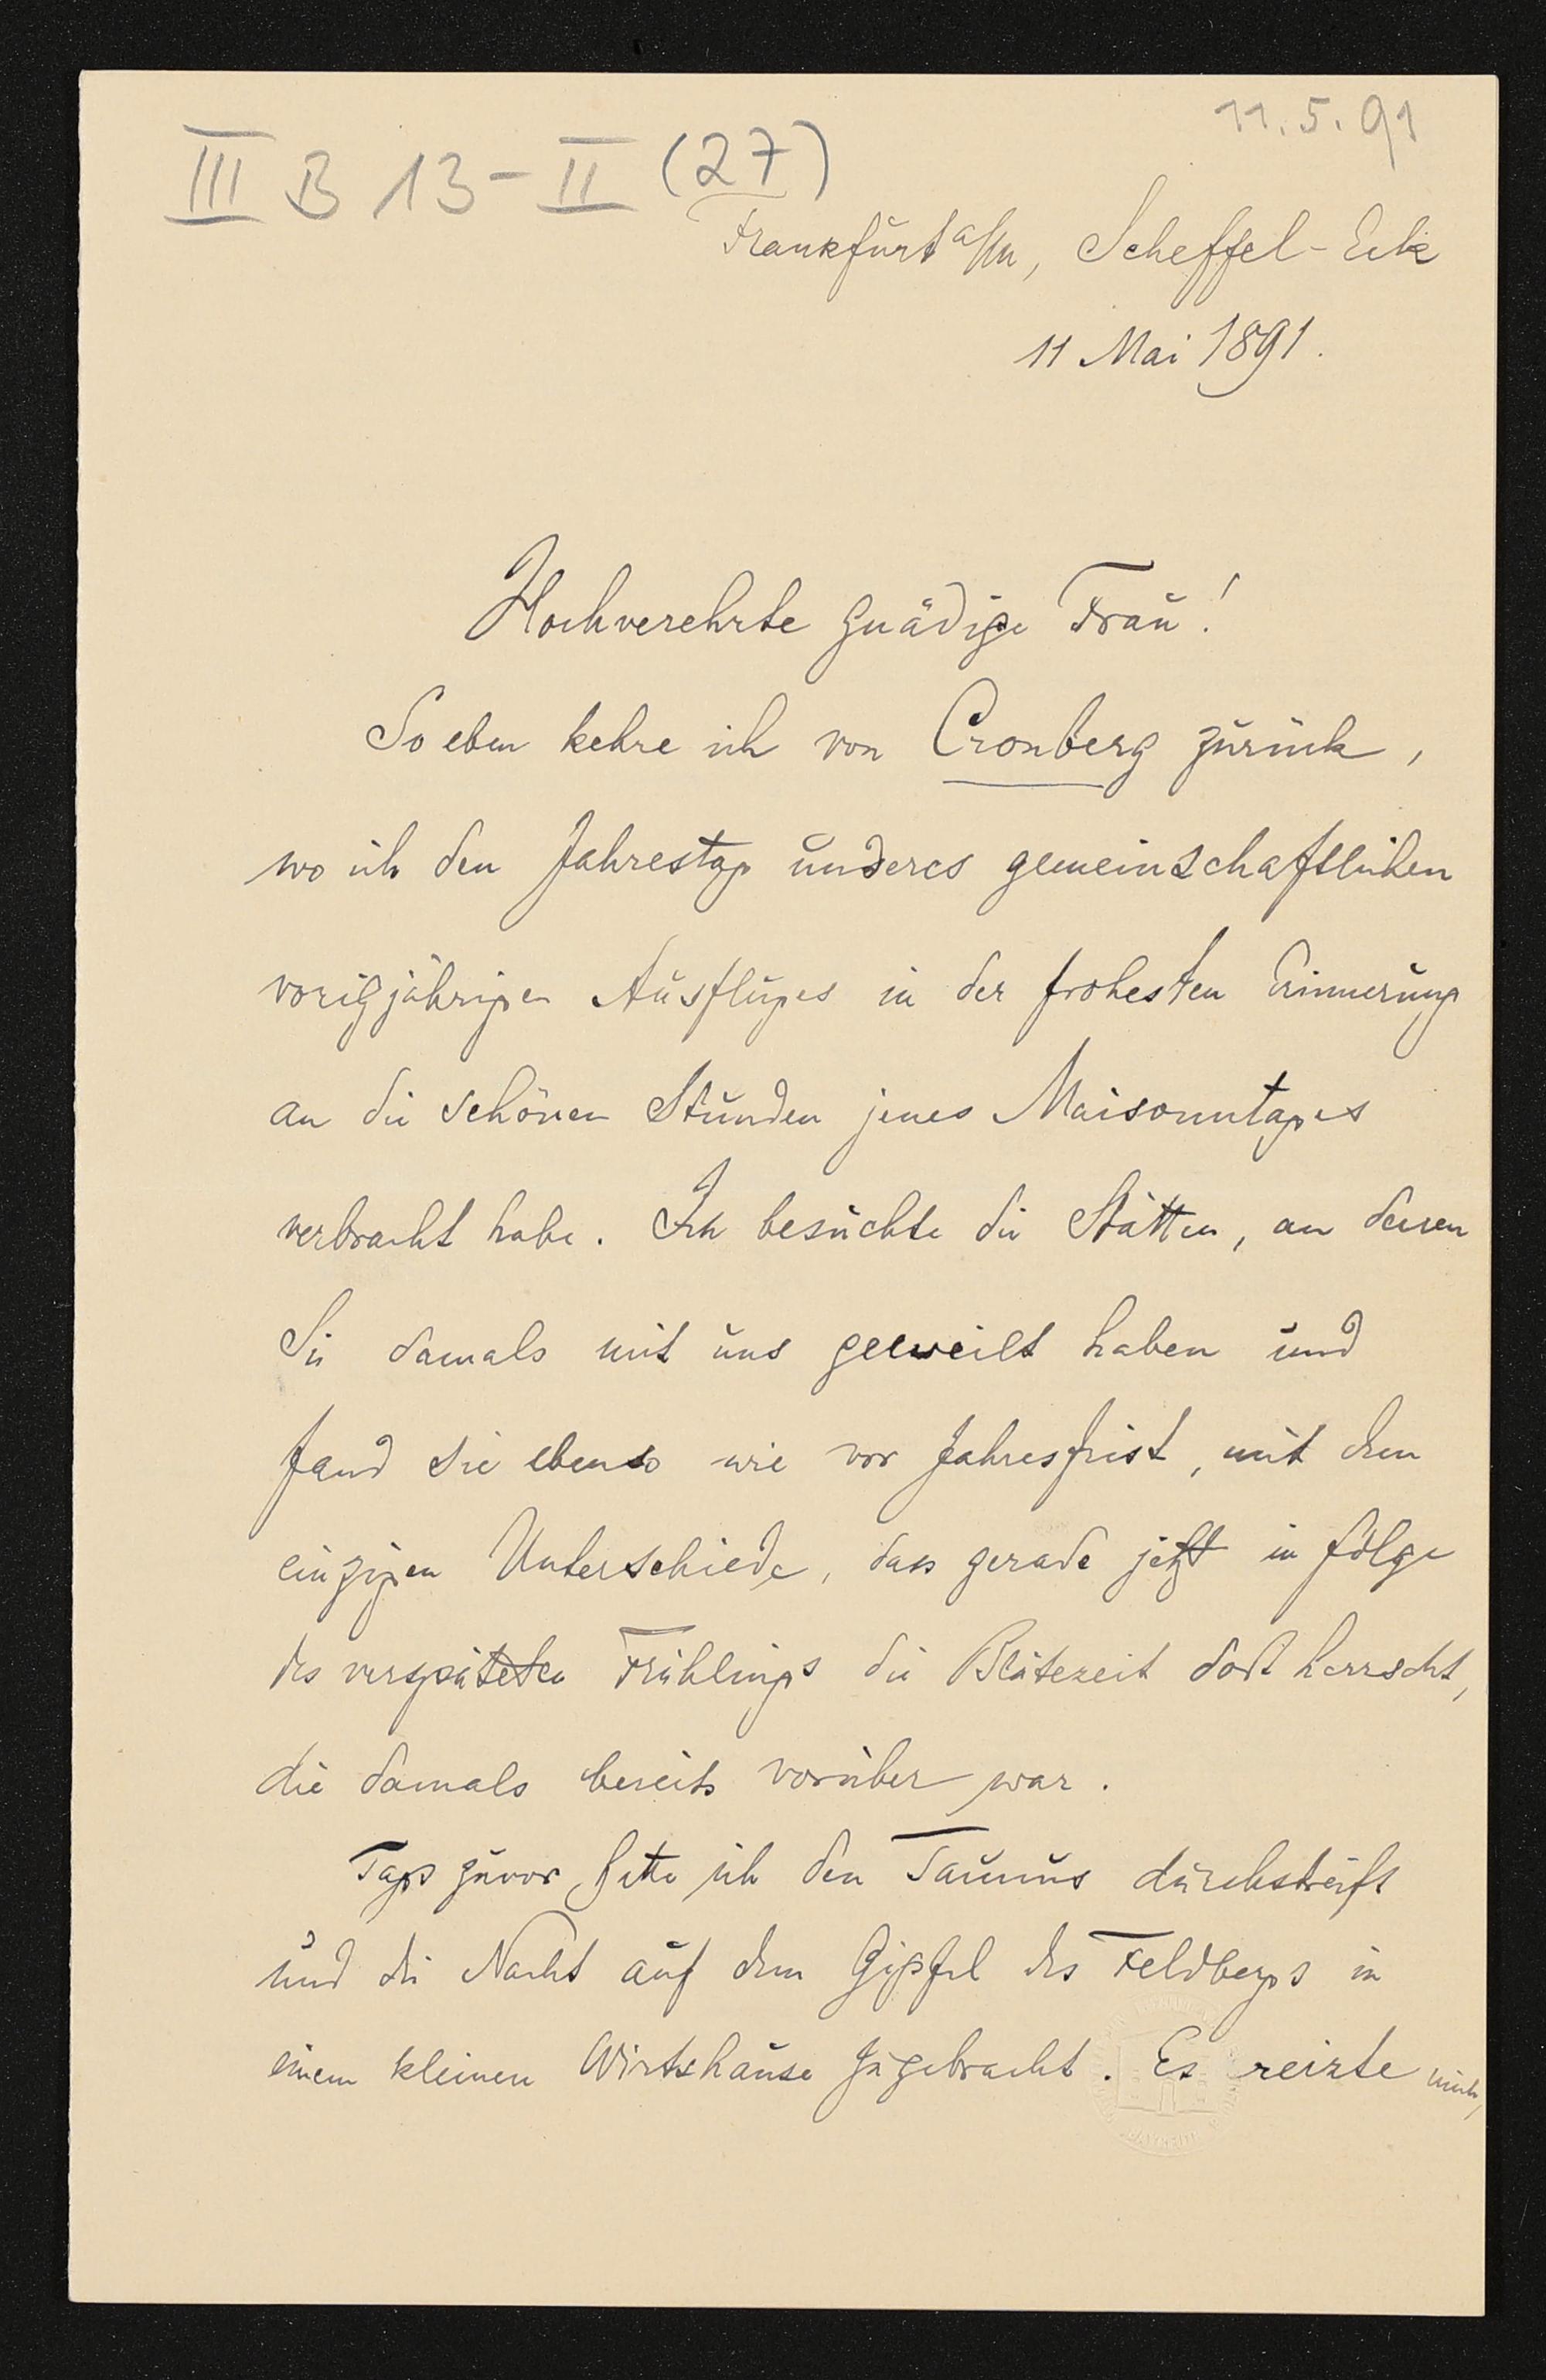 11.5.91
III B 13-II (27)
Frankfurt a/M, Scheffel-Eck
11 Mai 1891.
Hochverehrte gnädige Frau!
So eben kehre ich von Cronberg zurück,
wo ich den Jahrestag unseres gemeinschaftlichen
vorigjährigen Ausfluges in der frohesten Erinnerung
an die schönen Stunden jenes Maisonntages
verbracht habe. Ich besuchte die Stätten, an denen
Sie damals mit uns geweilt haben und
fand sie ebenso wie vor Jahresfrist, mit dem
einzigen Unterschiede, dass gerade jetzt in folge
des verspäteten Frühlings die Blütezeit dort herrscht,
die damals bereits vorüber war.
Tags zuvor hatte ich den Taunus durchstreift
und die Nacht auf dem Gipfel des Feldbergs in
einem kleinen Wirtshause zugebracht. Es reizte mich,